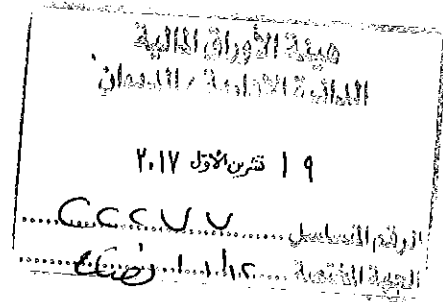 هيئة الأوراق المالية
الدائرة الادارية / الديوان
١٩ تشرين الأول ٢٠١٧
الرقم المتسلسل
الجهة المختصة